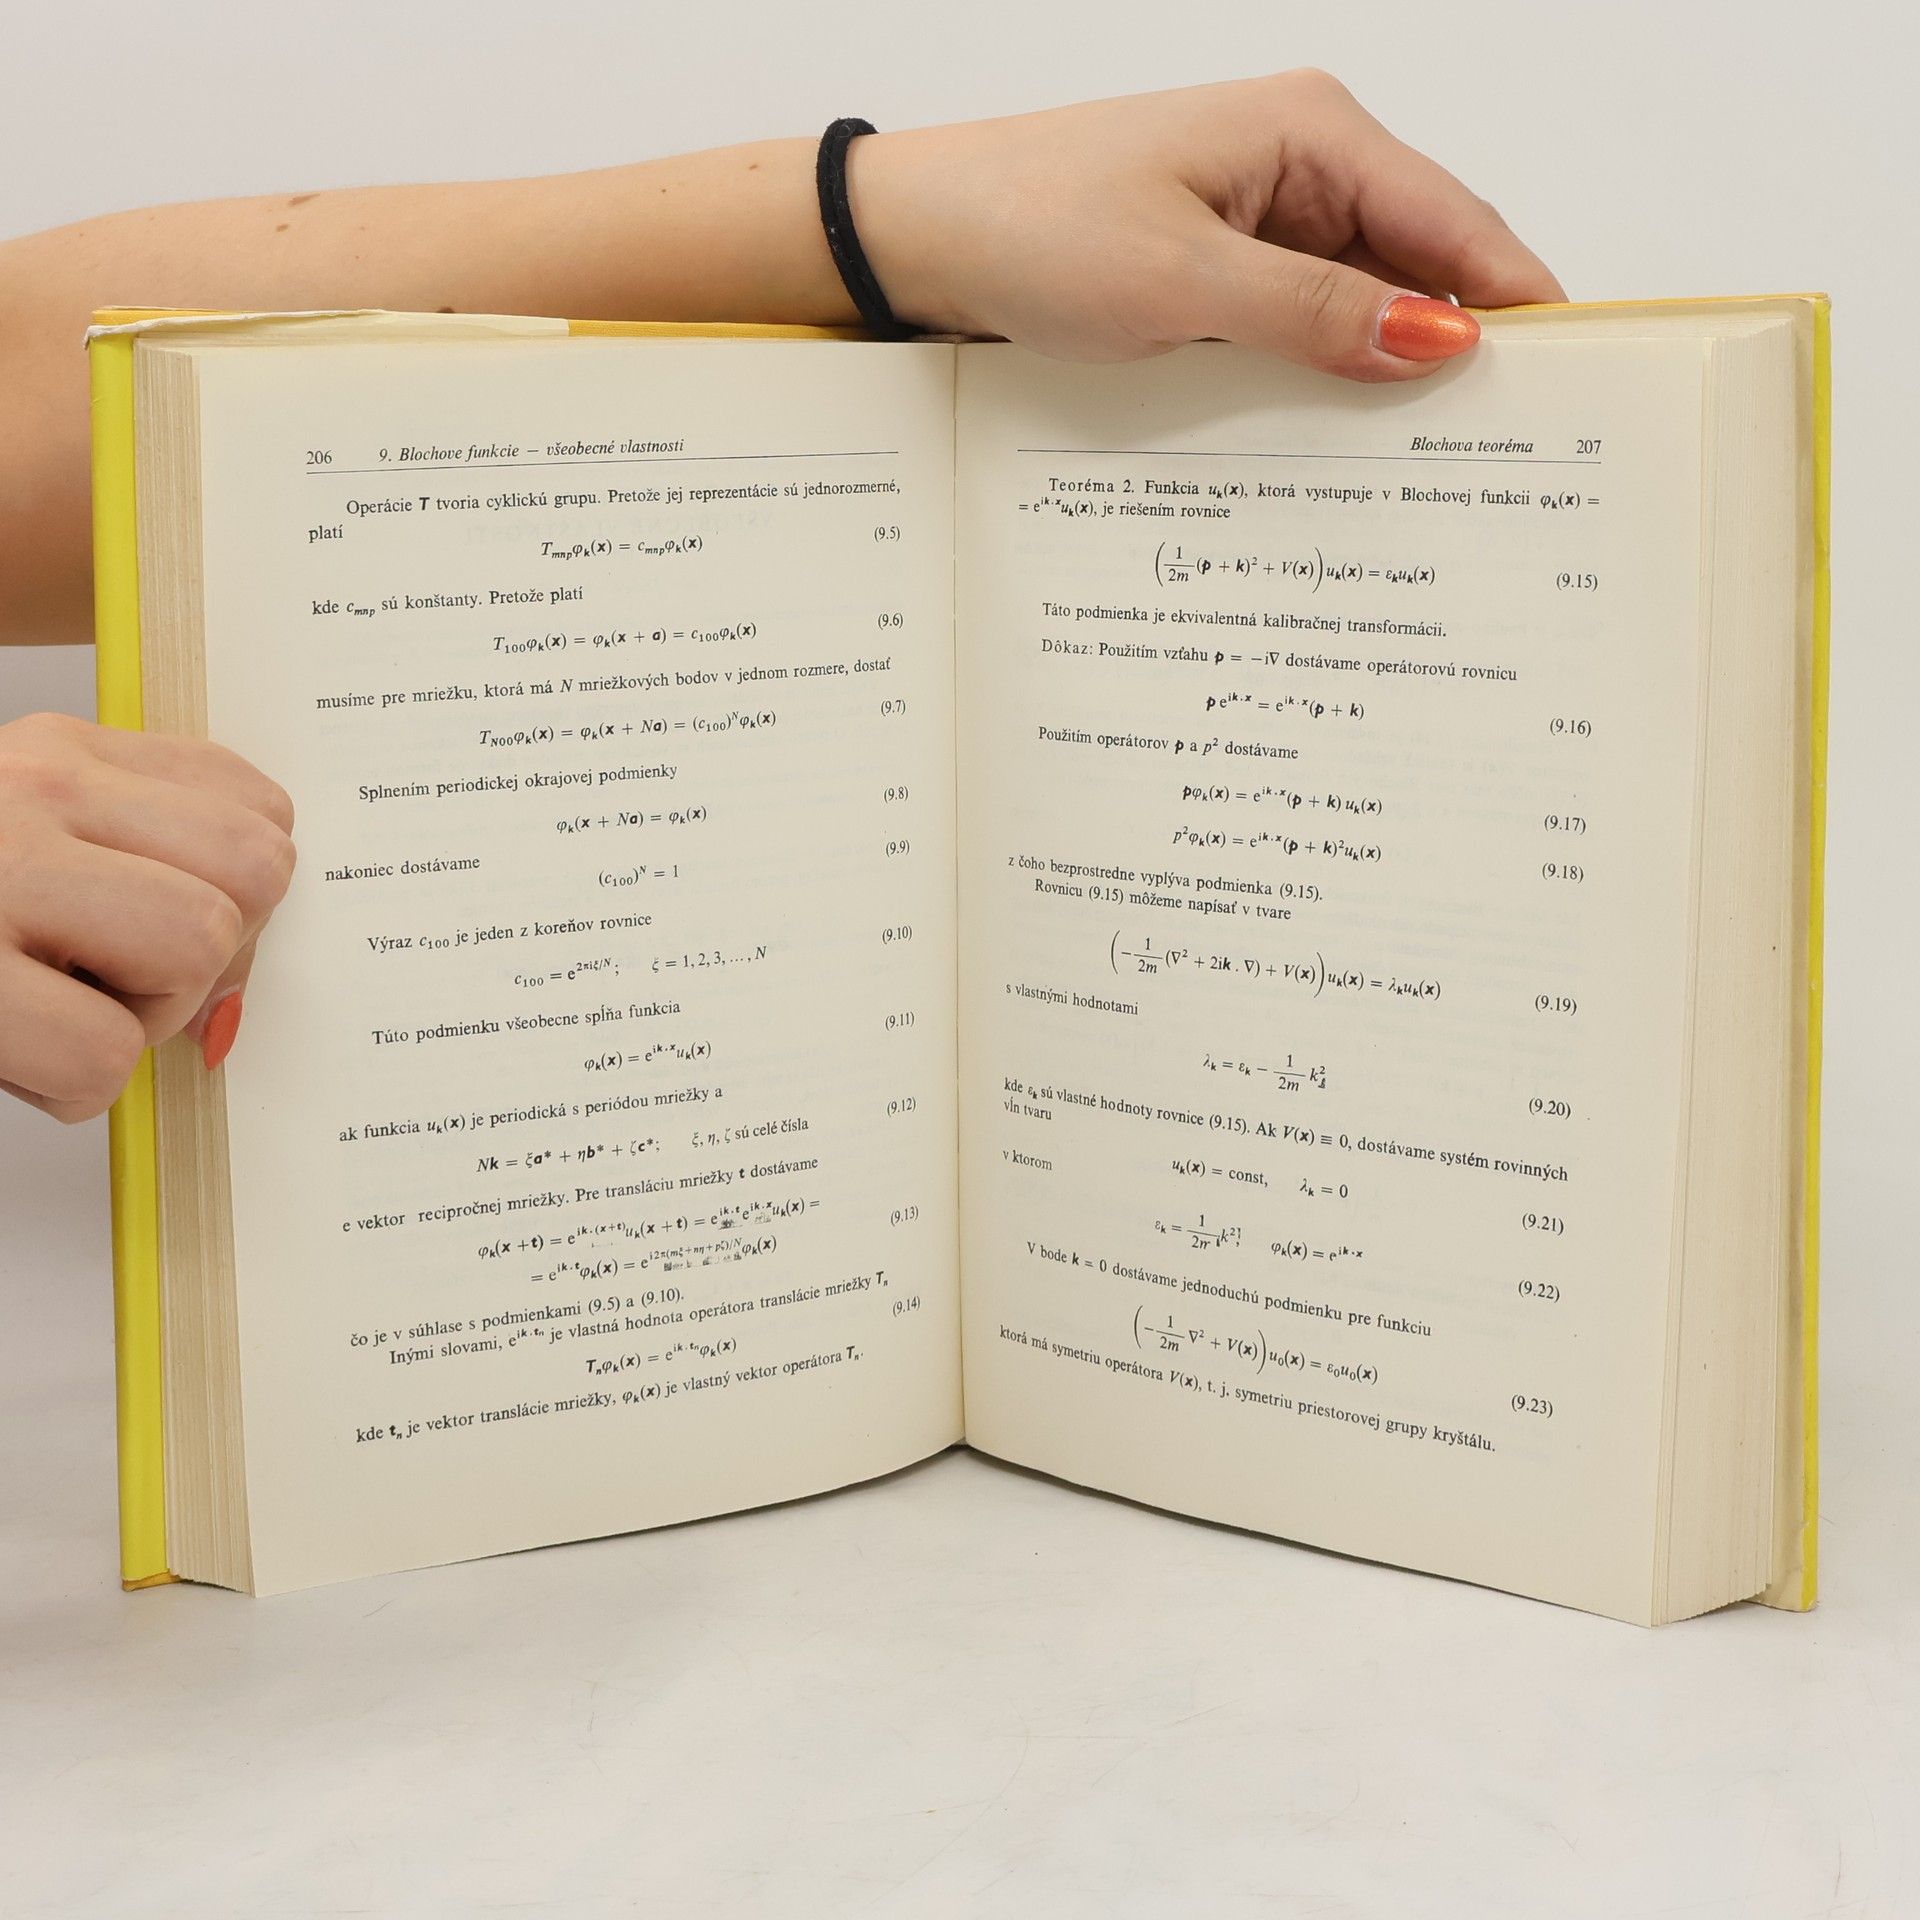 206 9. Blochove funkcie — všeobecné vlastnosti
Operácie T tvoria cyklickú grupu. Pretože jej reprezentácie sú jednorozmerné,
platí
T_mnp φ_k(x) = c_mnp φ_k(x) (9.5)
kde c_mnp sú konštanty. Pretože platí
T_100 φ_k(x) = φ_k(x + a) = c_100 φ_k(x) (9.6)
musíme pre mriežku, ktorá má N mriežkových bodov v jednom rozmere, dostať
T_N00 φ_k(x) = φ_k(x + Na) = (c_100)^N φ_k(x) (9.7)
Splnením periodickej okrajovej podmienky
φ_k(x + Na) = φ_k(x) (9.8)
nakoniec dostávame
(c_100)^N = 1 (9.9)
Výraz c_100 je jeden z koreňov rovnice
c_100 = e^{2πiξ/N}; ξ = 1, 2, 3, ..., N (9.10)
Túto podmienku všeobecne spĺňa funkcia
φ_k(x) = e^{ik.x} u_k(x) (9.11)
ak funkcia u_k(x) je periodická s periódou mriežky a
Nk = ξa* + ηb* + ζc*; ξ, η, ζ sú celé čísla (9.12)
e vektor recipročnej mriežky. Pre transláciu mriežky t dostávame
φ_k(x + t) = e^{ik.(x+t)} u_k(x + t) = e^{ik.t} e^{ik.x} u_k(x) =
= e^{ik.t} φ_k(x) = e^{i2π(mξ+nη+pζ)/N} φ_k(x) (9.13)
čo je v súhlase s podmienkami (9.5) a (9.10).
Inými slovami, e^{ik.t_n} je vlastná hodnota operátora translácie mriežky T_n
T_n φ_k(x) = e^{ik.t_n} φ_k(x) (9.14)
kde t_n je vektor translácie mriežky, φ_k(x) je vlastný vektor operátora T_n.
Blochova teoréma 207
Teoréma 2. Funkcia u_k(x), ktorá vystupuje v Blochovej funkcii φ_k(x) =
= e^{ik.x} u_k(x), je riešením rovnice
(1/2m (p + k)² + V(x)) u_k(x) = ε_k u_k(x) (9.15)
Táto podmienka je ekvivalentná kalibračnej transformácii.
Dôkaz: Použitím vzťahu p = −i∇ dostávame operátorovú rovnicu
p e^{ik.x} = e^{ik.x}(p + k) (9.16)
Použitím operátorov p a p² dostávame
pφ_k(x) = e^{ik.x}(p + k) u_k(x) (9.17)
p²φ_k(x) = e^{ik.x}(p + k)² u_k(x) (9.18)
z čoho bezprostredne vyplýva podmienka (9.15).
Rovnicu (9.15) môžeme napísať v tvare
(−1/2m (∇² + 2ik . ∇) + V(x)) u_k(x) = λ_k u_k(x) (9.19)
s vlastnými hodnotami
λ_k = ε_k − 1/2m k² (9.20)
kde ε_k sú vlastné hodnoty rovnice (9.15). Ak V(x) ≡ 0, dostávame systém rovinných
vĺn tvaru
u_k(x) = const, λ_k = 0 (9.21)
v ktorom
ε_k = 1/2m k²; φ_k(x) = e^{ik.x} (9.22)
V bode k = 0 dostávame jednoduchú podmienku pre funkciu
(−1/2m ∇² + V(x)) u_0(x) = ε_0 u_0(x) (9.23)
ktorá má symetriu operátora V(x), t. j. symetriu priestorovej grupy kryštálu.